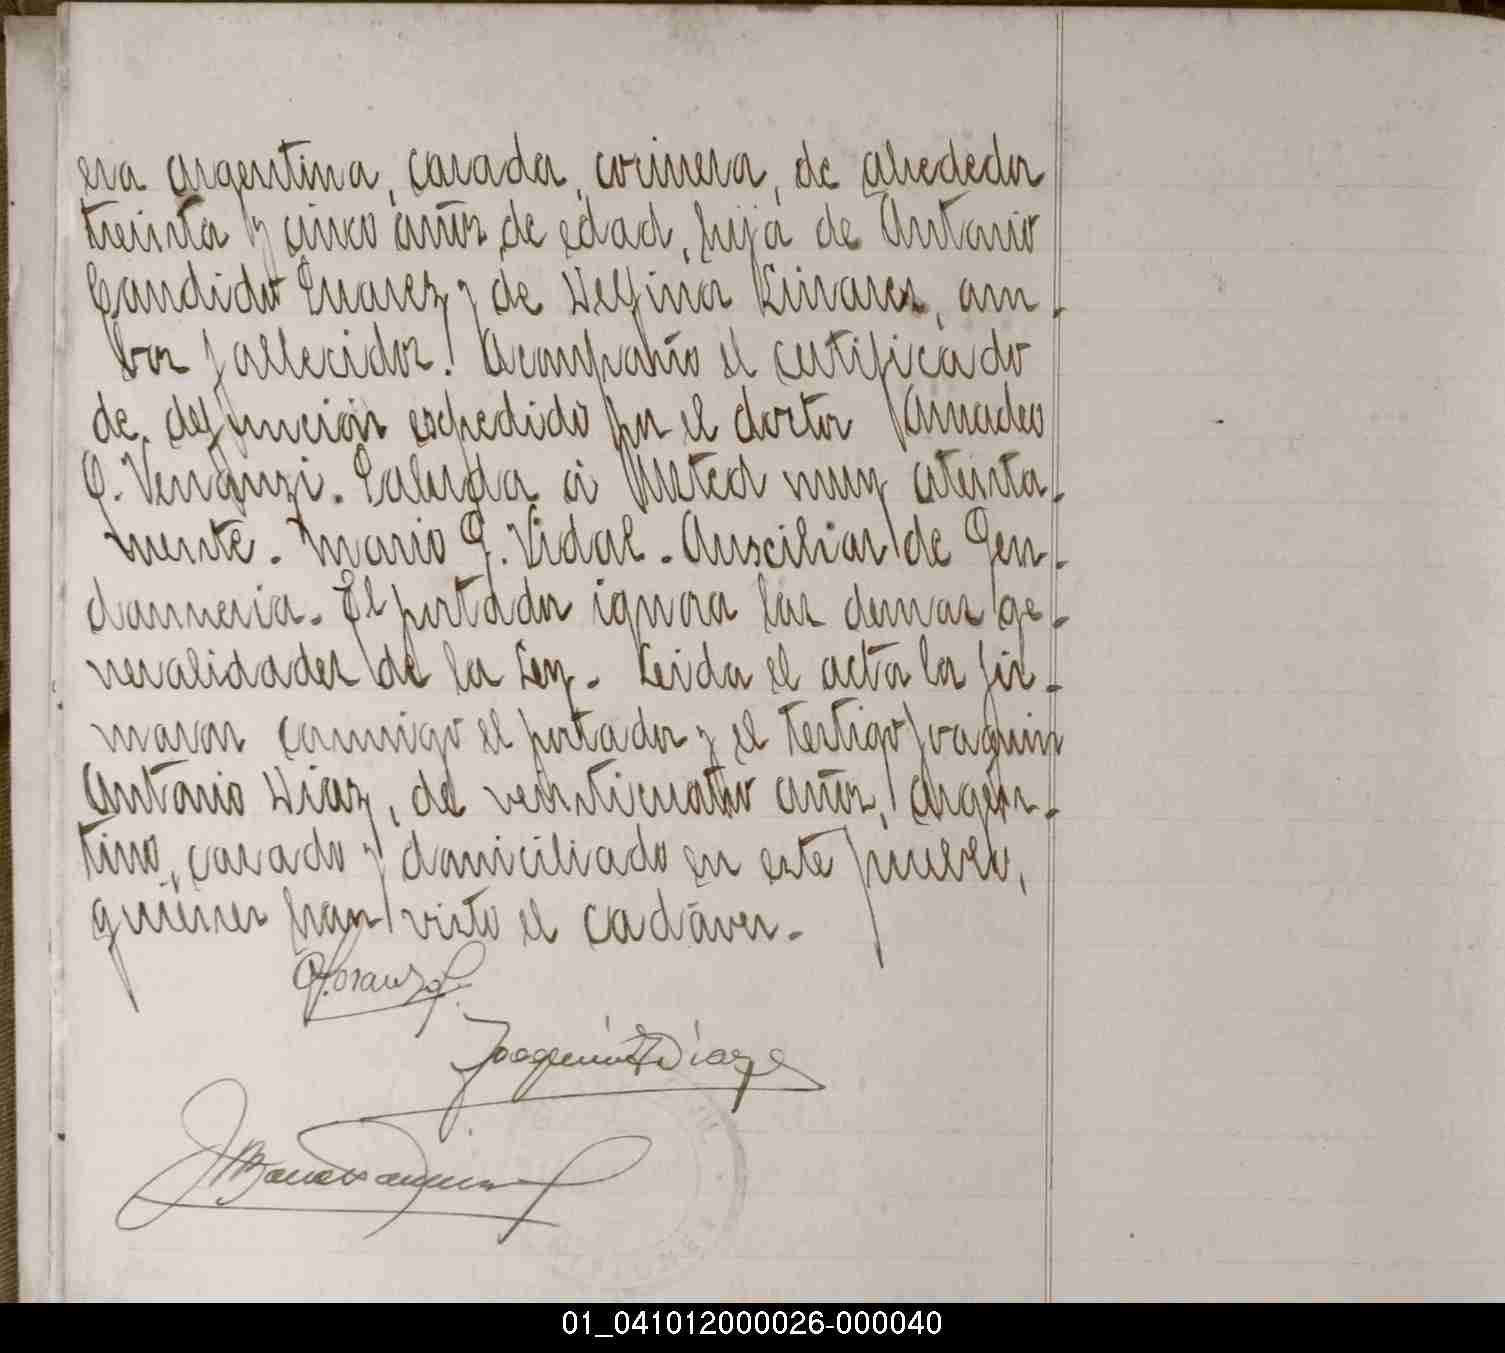 era argentina, casada, cocinera, de alrededor
treinta y cinco años de edad, hija de Antonio
Candido Suarez y de Delfina Linares, am-
bos fallecidos. Acompaño el certificado
de defunción expedido por el doctor Amadeo
Q. Venanzi. Saluda á Usted muy atenta-
mente. Mario G. Vidal. Ausciliar de Gen-
darmeria. El portador ignora las demas ge-
neralidades de la Ley. Leida el acta la fir-
maron conmigo el portador y el testigo Joaquin
Antonio Diaz, de veinticuatro años, argen-
tino, casado y domiciliado en este pueblo,
quienes han visto el cadáver.
Joaquin A Diaz
01_041012000026-000040